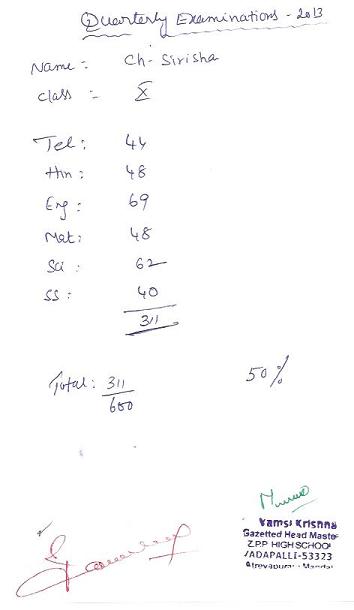 Quarterly Examinations - 2013
Name : Ch- Sirisha
Class : X
Tel : 44
Hin : 48
Eng : 69
Mat : 48
Sci : 62
SS : 40
311
Total : 311/600 50%
Vamsi Krishna
Gazetted Head Master
Z.P.P HIGH SCHOOL
VADAPALLI-53323
Atreyapuram - Mandal